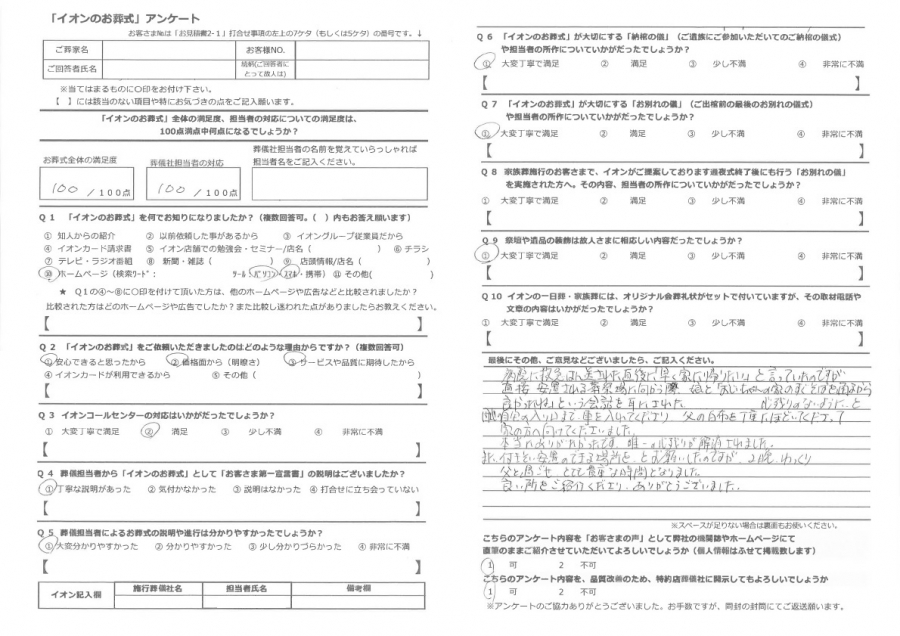 「イオンのお葬式」アンケート
お客さま№は「お見積書2-1」打合せ事項の左上の7ケタ（もしくは5ケタ）の番号です。↓
ご葬家名 お客様NO.
ご回答者氏名 続柄(ご回答者にとって故人は)
※当てはまるものに○印をお付け下さい。
【 】には該当のない項目や特にお気づきの点をご記入願います。
「イオンのお葬式」全体の満足度、担当者の対応についての満足度は、
100点満点中何点になるでしょうか？
葬儀社担当者の名前を覚えていらっしゃれば
担当者名をご記入ください。
お葬式全体の満足度 葬儀社担当者の対応
100 /100点 100 /100点
Q1 「イオンのお葬式」を何でお知りになりましたか？（複数回答可。( ）内もお答え願います）
① 知人からの紹介 ② 以前依頼した事があるから ③ イオングループ従業員だから
④ イオンカード請求書 ⑤ イオン店舗での勉強会・セミナー/店名（ ） ⑥ チラシ
⑦ テレビ・ラジオ番組 ⑧ 新聞・雑誌（ ） ⑨ 店頭情報/店名（ ）
⑩ ホームページ（検索ﾜｰﾄﾞ： ﾂｰﾙ（パソコン・スマホ・携帯） ⑪ その他( )
★ Q1の④～⑧に○印を付けて頂いた方は、他のホームページや広告などと比較されましたか？
比較された方はどのホームページや広告でしたか？また比較し迷われた点がありましたらお教えください。
【 】
Q2 「イオンのお葬式」をご依頼いただきましたのはどのような理由からですか？（複数回答可）
① 安心できると思ったから ② 価格面から（明瞭さ） ③ サービスや品質に期待したから
④ イオンカードが利用できるから ⑤ その他（ )
【 】
Q3 イオンコールセンターの対応はいかがだったでしょうか？
① 大変丁寧で満足 ② 満足 ③ 少し不満 ④ 非常に不満
【 】
Q4 葬儀担当者から「イオンのお葬式」として「お客さま第一宣言書」の説明はございましたか？
① 丁寧な説明があった ② 気付かなかった ③ 説明はなかった ④ 打合せに立ち会っていない
【 】
Q5 葬儀担当者によるお葬式の説明や進行は分かりやすかったでしょうか？
① 大変分かりやすかった ② 分かりやすかった ③ 少し分かりづらかった ④ 非常に不満
【 】
イオン記入欄 施行葬儀社名 担当者氏名 備考欄
Q6 「イオンのお葬式」が大切にする「納棺の儀」（ご遺族にご参加いただいてのご納棺の儀式）
や担当者の所作についていかがだったでしょうか？
① 大変丁寧で満足 ② 満足 ③ 少し不満 ④ 非常に不満
【 】
Q7 「イオンのお葬式」が大切にする「お別れの儀」（ご出棺前の最後のお別れの儀式）
や担当者の所作についていかがだったでしょうか？
① 大変丁寧で満足 ② 満足 ③ 少し不満 ④ 非常に不満
【 】
Q8 家族葬施行のお客さまで、イオンがご提案しております通夜式終了後にも行う「お別れの儀」
を実施された方へ。その内容、担当者の所作についていかがだったでしょうか？
① 大変丁寧で満足 ② 満足 ③ 少し不満 ④ 非常に不満
【 】
Q9 祭壇や遺品の装飾は故人さまに相応しい内容だったでしょうか？
① 大変丁寧で満足 ② 満足 ③ 少し不満 ④ 非常に不満
【 】
Q10 イオンの一日葬・家族葬には、オリジナル会葬礼状がセットで付いていますが、その取材電話や
文章の内容はいかがだったでしょうか？
① 大変丁寧で満足 ② 満足 ③ 少し不満 ④ 非常に不満
【 】
最後にその他、ご意見などございましたら、ご記入ください。
直後に「早く家に帰りたい」と言っていたのですが
直接 安置される斎場に向かう際
良かったね」という会話を 心残りのないように、と
車を入れてくださり 父の白布を丁寧にほどいてくださって
家の方へ向けてくださいました。
本当にありがたかったです。唯一の心残りが解消されました。
安置のできる場所を、とお願いしたのですが、2晩、ゆっくり
父と過ごせ、とても貴重な時間となりました。
良い所をご紹介くださり、ありがとうございました。
※スペースが足りない場合は裏面もお使いください。
こちらのアンケート内容を「お客さまの声」として弊社の機関誌やホームページにて
直筆のままご紹介させていただいてよろしいでしょうか（個人情報はふせて掲載致します）
1 可 2 不可
こちらのアンケート内容を、品質改善のため、特約店葬儀社に開示してもよろしいでしょうか
1 可 2 不可
※アンケートのご協力ありがとうございました。お手数ですが、同封の封筒にてご返送願います。